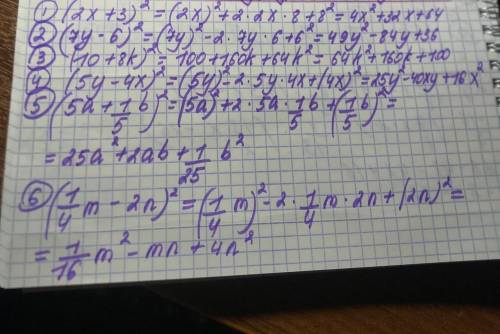 ① (2x+3)² = (2x)²+2·2x·8+8² = 4x²+32x+64
② (7y-6)² = (7y)²-2·7y·6+6² = 49y²-84y+36
③ (10+8k)² = 100+160k+64k² = 64k²+160k+100
④ (5y-4x)² = (5y)²-2·5y·4x+(4x)² = 25y²-40xy+16x²
⑤ (5a+1/5 b)² = (5a)²+2·5a·1/5 b+(1/5 b)² =
= 25a²+2ab+1/25 b²
⑥ (1/4 m-2n)² = (1/4 m)²-2·1/4 m·2n+(2n)² =
= 1/16 m²-mn+4n²